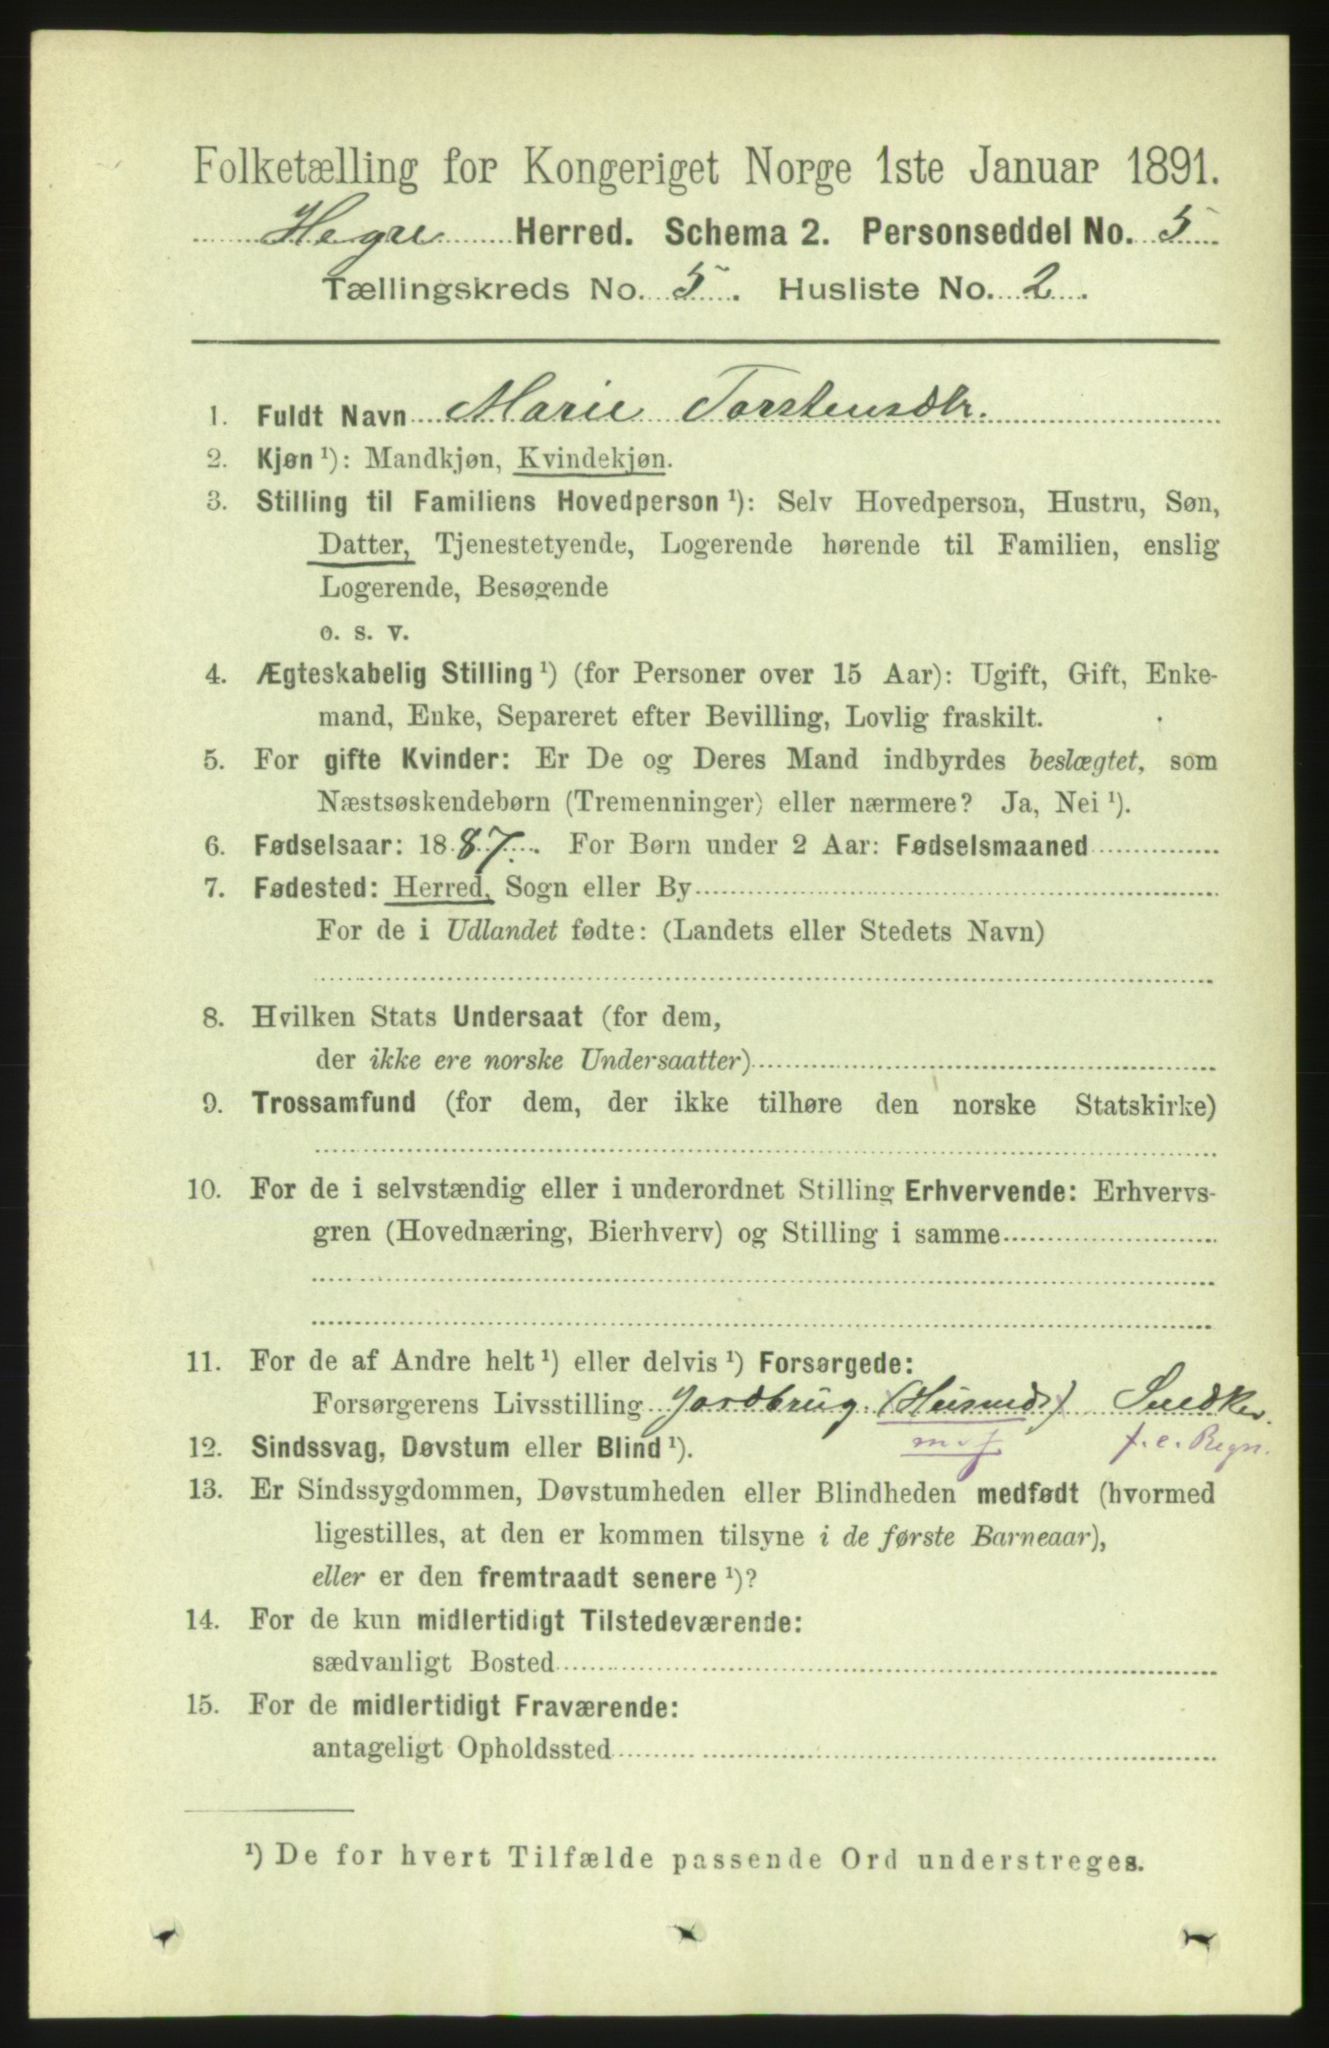 Folketælling for Kongeriget Norge 1ste Januar 1891.
Hegre Herred. Schema 2. Personseddel No. 5
Tællingskreds No. 5. Husliste No. 2.
1. Fuldt Navn Marie Torstensdtr.
2. Kjøn ¹): Mandkjøn, Kvindekjøn.
3. Stilling til Familiens Hovedperson ¹): Selv Hovedperson, Hustru, Søn,
Datter, Tjenestetyende, Logerende hørende til Familien, enslig
Logerende, Besøgende
o. s. v.
4. Ægteskabelig Stilling ¹) (for Personer over 15 Aar): Ugift, Gift, Enke-
mand, Enke, Separeret efter Bevilling, Lovlig fraskilt.
5. For gifte Kvinder: Er De og Deres Mand indbyrdes beslægtet, som
Næstsøskendebørn (Tremenninger) eller nærmere? Ja, Nei ¹).
6. Fødselsaar: 1887. For Børn under 2 Aar: Fødselsmaaned
7. Fødested: Herred, Sogn eller By
For de i Udlandet fødte: (Landets eller Stedets Navn)
8. Hvilken Stats Undersaat (for dem,
der ikke ere norske Undersaatter)
9. Trossamfund (for dem, der ikke tilhøre den norske Statskirke)
10. For de i selvstændig eller i underordnet Stilling Erhvervende: Erhvervs-
gren (Hovednæring, Bierhverv) og Stilling i samme
11. For de af Andre helt ¹) eller delvis ¹) Forsørgede:
Forsørgerens Livsstilling Jordbrug (Husmds) Snedker.
m. j f. e. Regn.
12. Sindssvag, Døvstum eller Blind ¹).
13. Er Sindssygdommen, Døvstumheden eller Blindheden medfødt (hvormed
ligestilles, at den er kommen tilsyne i de første Barneaar),
eller er den fremtraadt senere ¹)?
14. For de kun midlertidigt Tilstedeværende:
sædvanligt Bosted
15. For de midlertidigt Fraværende:
antageligt Opholdssted
¹) De for hvert Tilfælde passende Ord understreges.